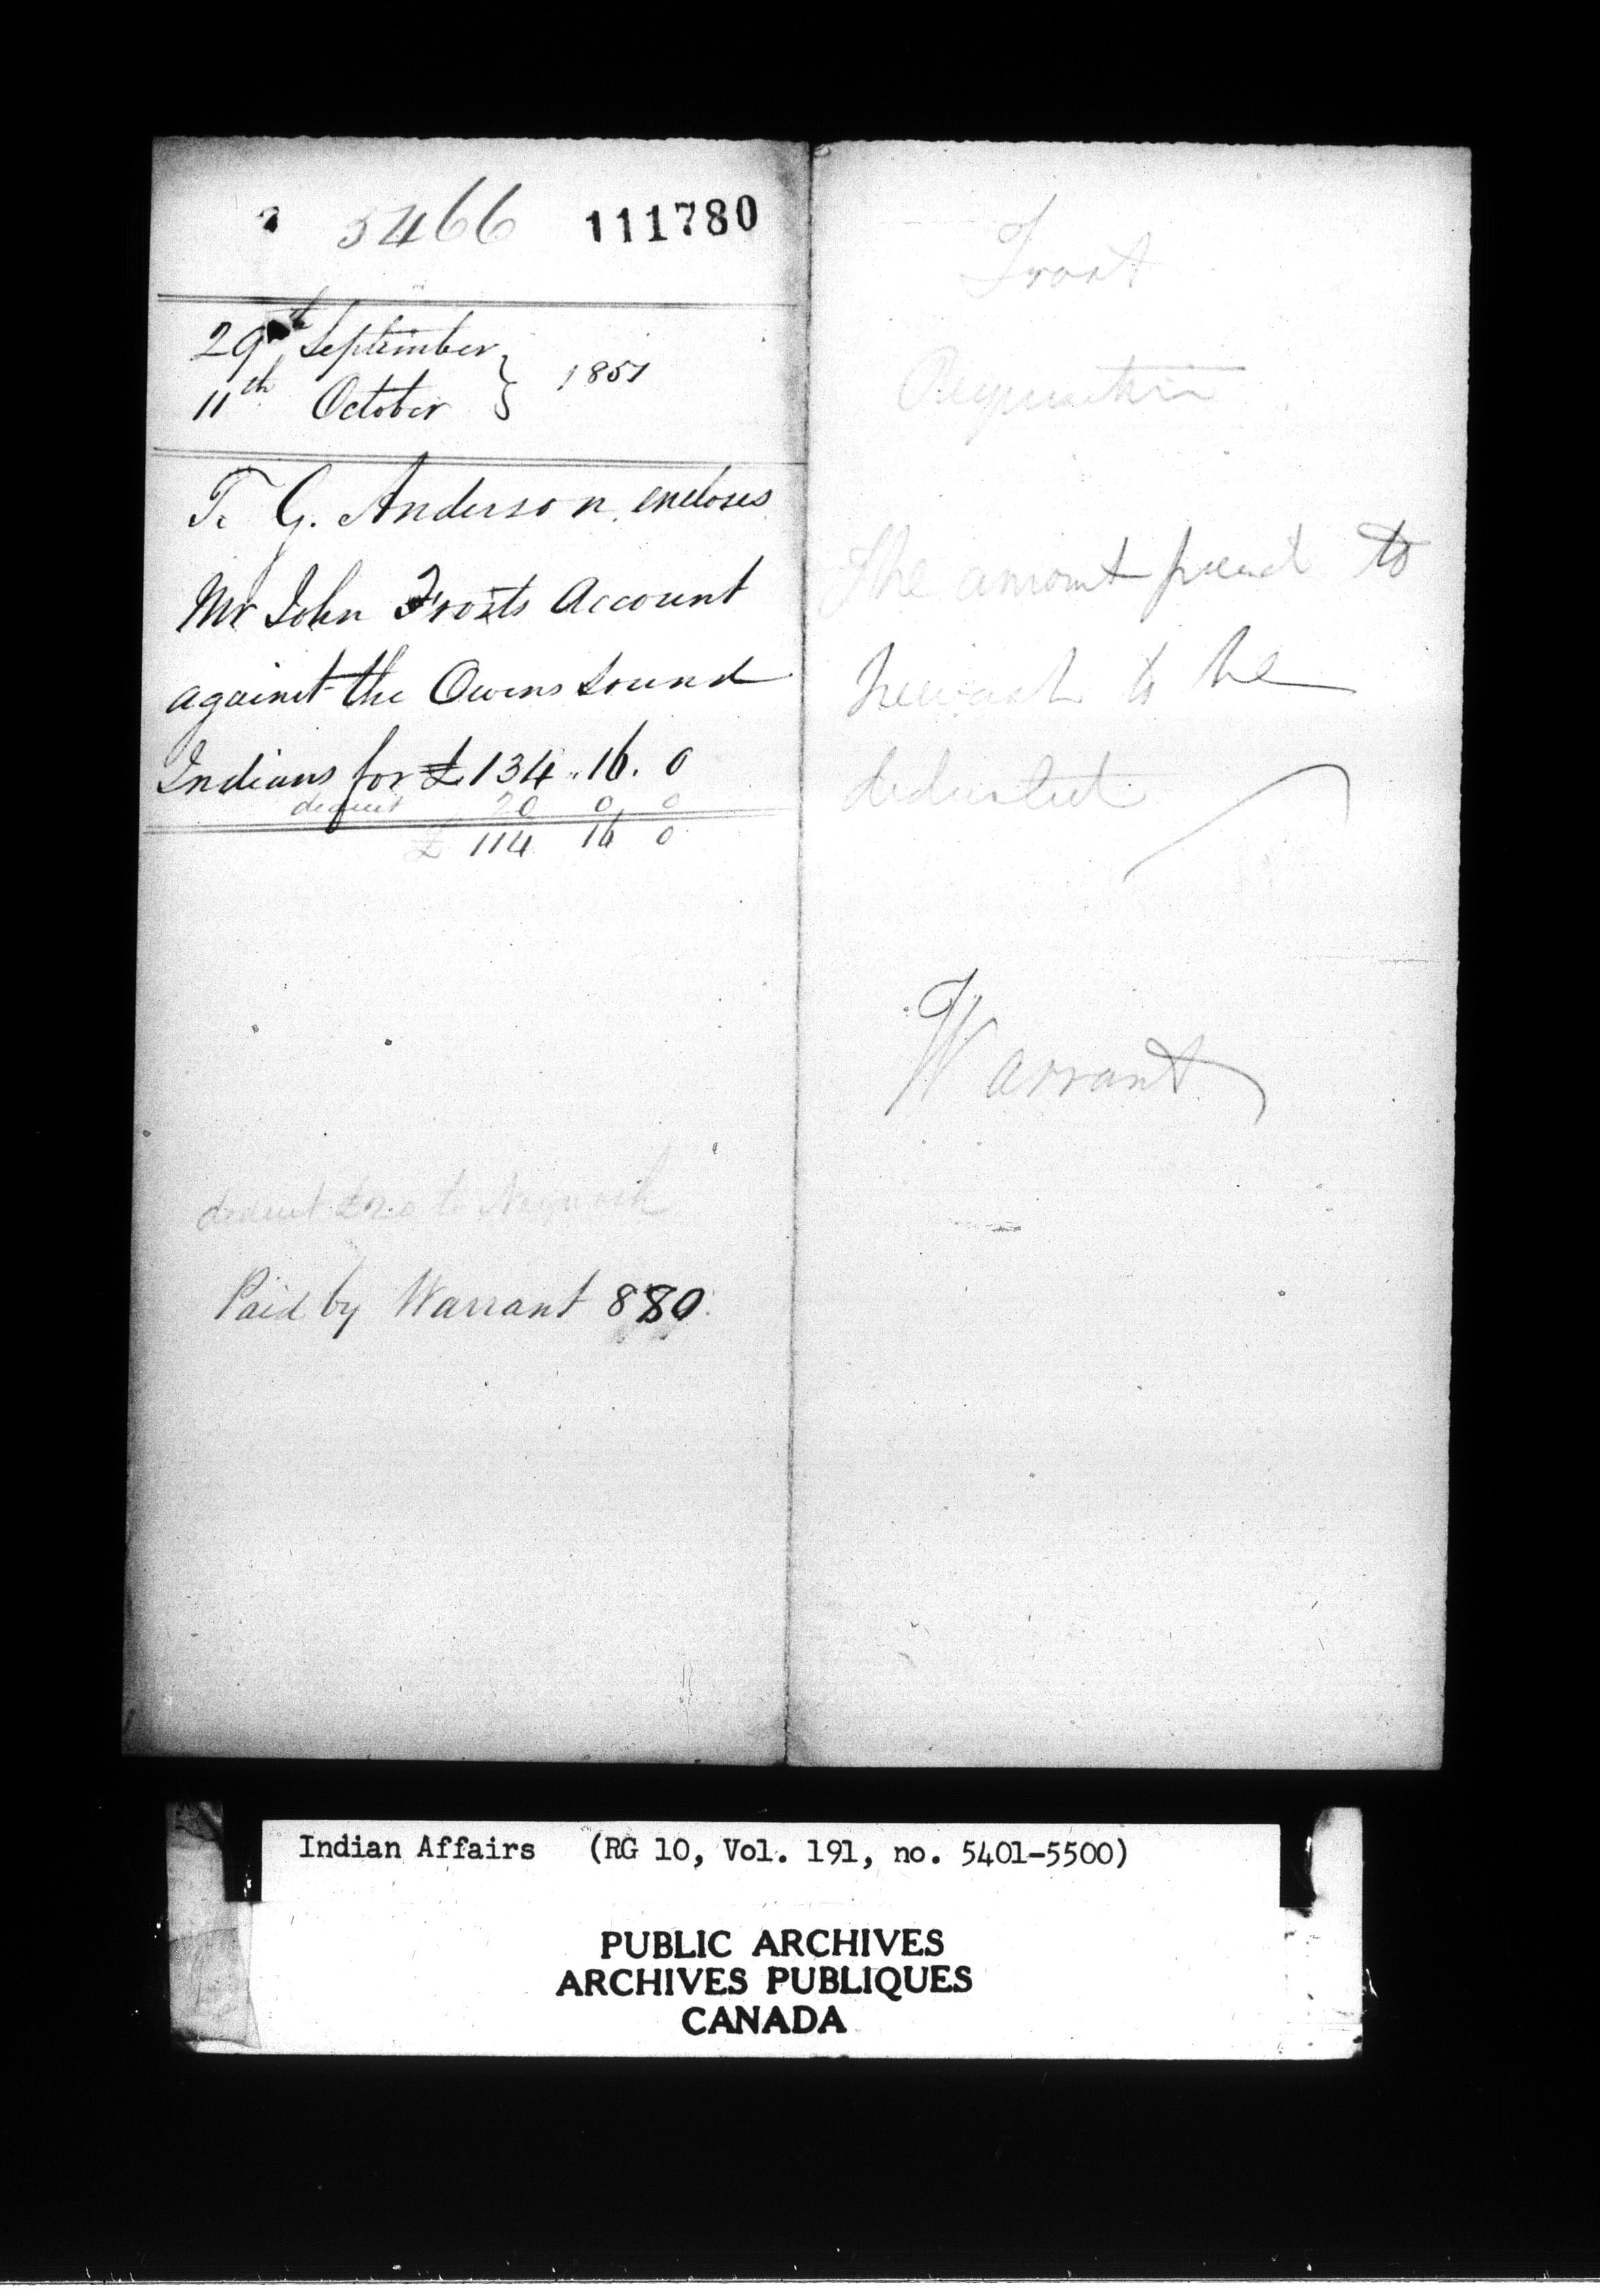 5466 111780
29th September
11th October } 1851
T. G. Anderson encloses
Mr John Frosts Account
against the Owens Sound
Indians for £134.16.0
deduct 20 0 0
£ 114 16 0
deduct £20 to
Paid by Warrant 880
Frost
Requisition
The amount paid to
to be
deducted
Warrant
Indian Affairs (RG 10, Vol. 191, no. 5401-5500)
PUBLIC ARCHIVES
ARCHIVES PUBLIQUES
CANADA